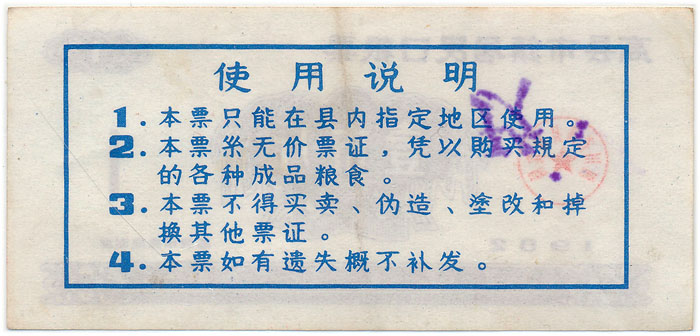 使用说明
1.本票只能在县内指定地区使用。
2.本票系无价票证，凭以購买規定
的各种成品粮食。
3.本票不得买卖、伪造、塗改和掉
换其他票证。
4.本票如有遗失概不补发。